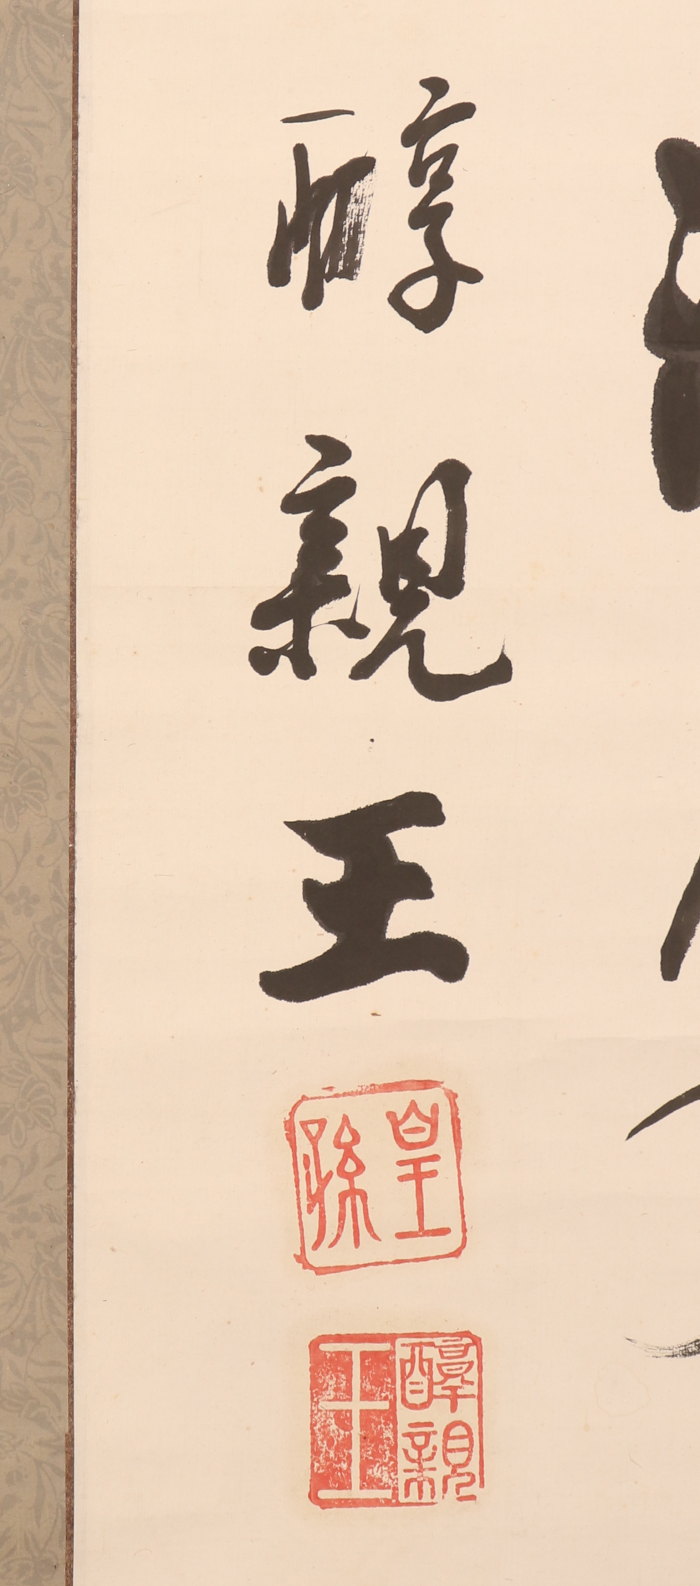 醇親王
皇孫
醇親王